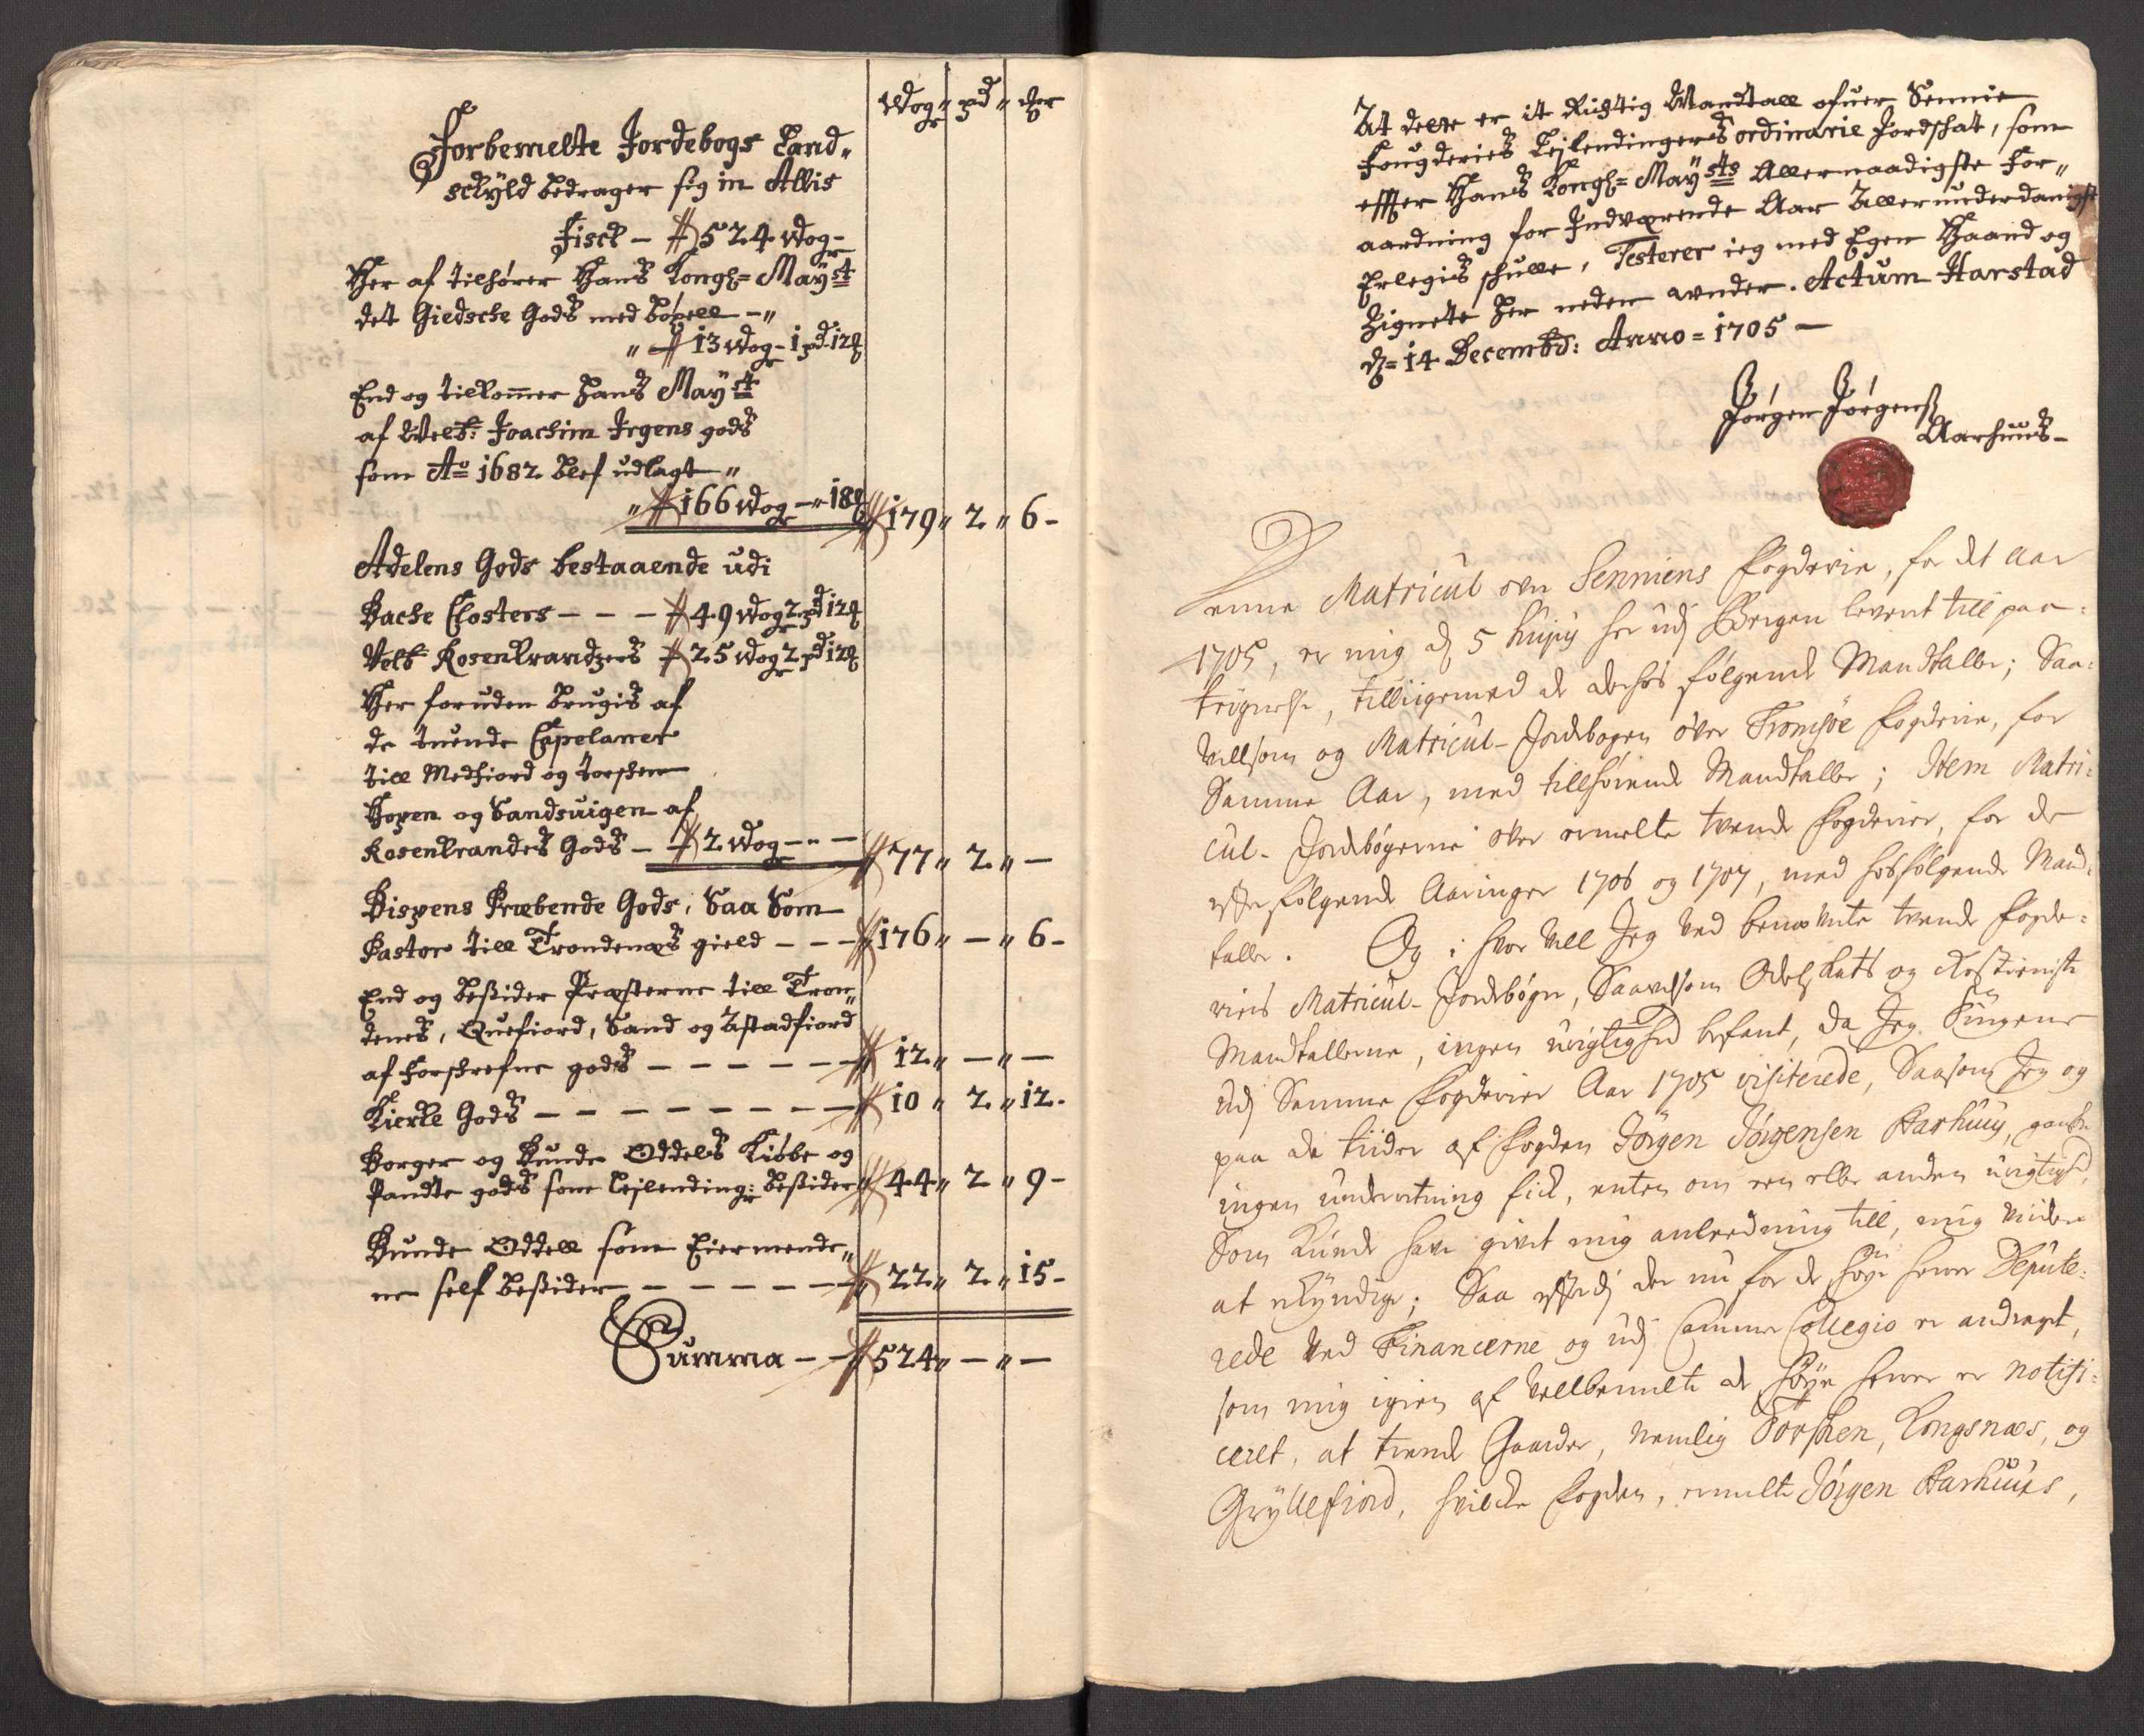 Wog " pd " mrk
Forbemelte Jordebogs Land„
schÿld bedrager sig in Alvis
Fisch — 524 Wog -
Her af tilhører Hans Kongl= Maÿst
det Giedsche Gods med Bøxell — "
" 13 Wog - 1 pd 12
End og tilkommer Hans Maÿst
af Welb: Joachim Irgens gods
som Ao 1682 blef udlagt "
" 166 Wog — " 18 179 " 2 " 6 -
Adelens Gods bestaaende udi
Bache Closters — — — 49 Wog 2 pd 12
Velb: Rosenkrandzes 25 Wog 2 pd 12
Her foruden brugis af
de tuende Capelaner
till Medfiord og torschen
Hopen og Sandsuigen af
Rosenkrandes Gods — 2 Wog - " — 77 " 2 " —
Bispens Præbende Gods, Saa Som
Pastor till Trondenæs gield — — — 176 " — " 6 -
End og besider Præsterne till Tron„
denes, Quefiord, Sand og Astadfiord
af forschrefne gods — — — — — 12 " — " —
Kircke Gods — — — — — — — — 10 " 2 " 12 -
Borger og Bunde Oddels Kiøbe og
Pandte gods som Lejlending: besider 44 " 2 " 9 -
Bunde Oddell som Eiermende„
ne self besider — — — — — — 22 " 2 " 15 -
Summa — — 524 " — " —
At dette er it Rigtig Mandtall ofuer Sennie
fougderies Lejlendingers ordinarie Jordschat, som
effter Hans Kongl= Maÿsts Allernaadigste For„
aardning for Indværende Aar Allerunderdanigst
Erlegis schulle, Testerer ieg med Egen Haand og
Zignete her neden under. Actum Harstad
d= 14 Decembr: Anno = 1705 —
Jørgen Jørgens
Aarhuus -
Denne Matricul over Senniens Fogderie, for det aar
1705, er mig d 5 hujus her udj Bergen levert till paa-
tegnelse, tilligemed de derhos følgende Mandtaller; Saa-
vellsom og Matricul-Jordebogen over Tromsøe Fogderie, for
Samme Aar, med tillhørende Mandtaller; Item Matri-
cul-Jordebøgerne over ermelte tvende Fogderier, for de
efterfølgende Aaringer 1706 og 1707, med hosfølgende Mand-
taller. Og i hvor vell Jeg ved benevnte tvende Fogde-
riers Matricul-Jordebøger, Saavelsom Odelskats og Rostieniste
Mandtallerne, ingen urigtighed befant, da Jeg Tingene
udj Samme Fogderier Aar 1705 visiterede, Saasom Jeg og
paa de tiider af Fogden Jørgen Jørgensen Aarhuus, gandske
ingen underretning fick, enten om een eller anden urigtighed,
Som kunde have givet mig anleedning till, mig viidere
at erkyndige; Saa efterdj der nu for de høye herrer Depute-
rede ved Financerne og udj Cammer Collegio er andraget,
som mig igien af vellbemelte de høÿe herrer er notifi-
ceret, at trende Gaarder, Nemlig Torschen, Kongsnæs, og
Grÿllefiord, hvilcke Fogden, ermelte Jørgen Aarhuus,